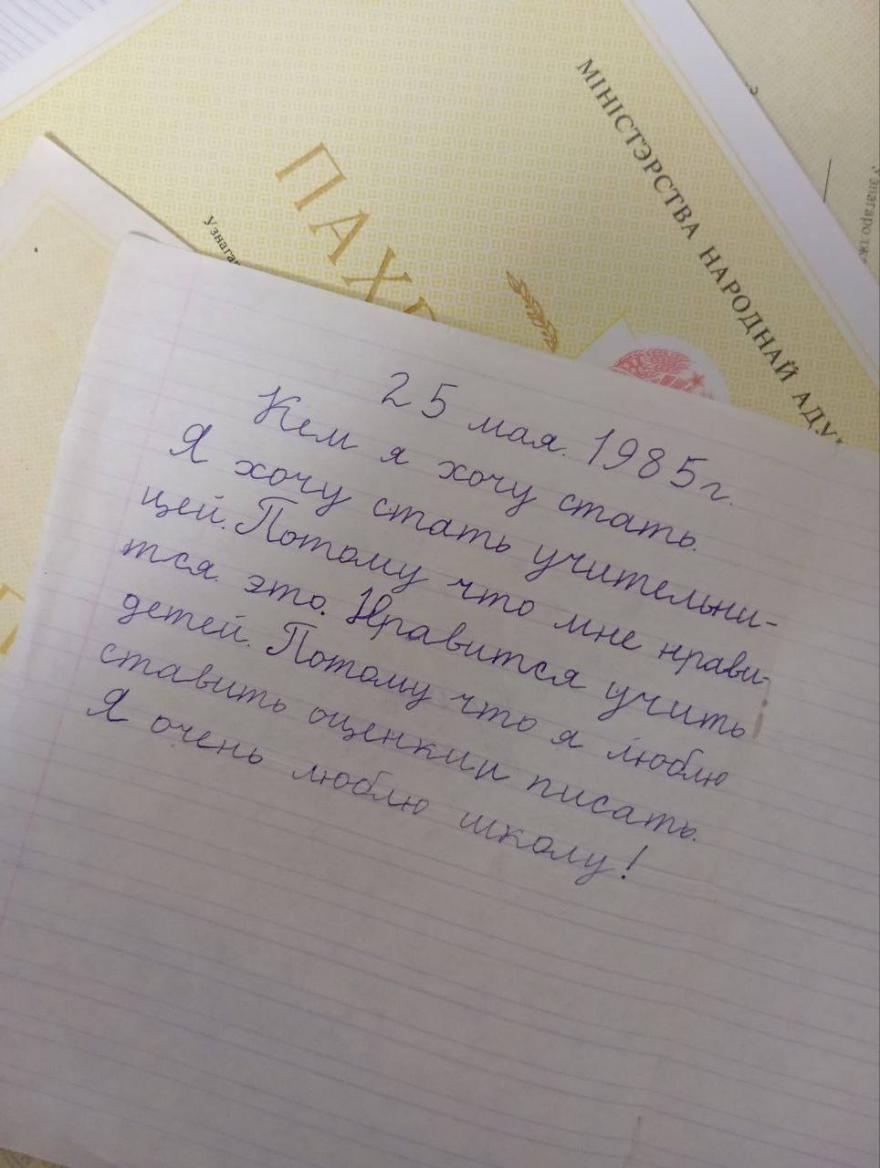 МІНІСТЭРСТВА НАРОДНАЙ
25 мая. 1985 г.
Кем я хочу стать.
Я хочу стать учительни-
цей. Потому что мне нрави-
тся это. Нравится учить
детей. Потому что я люблю
ставить оценкии писать.
Я очень люблю школу!